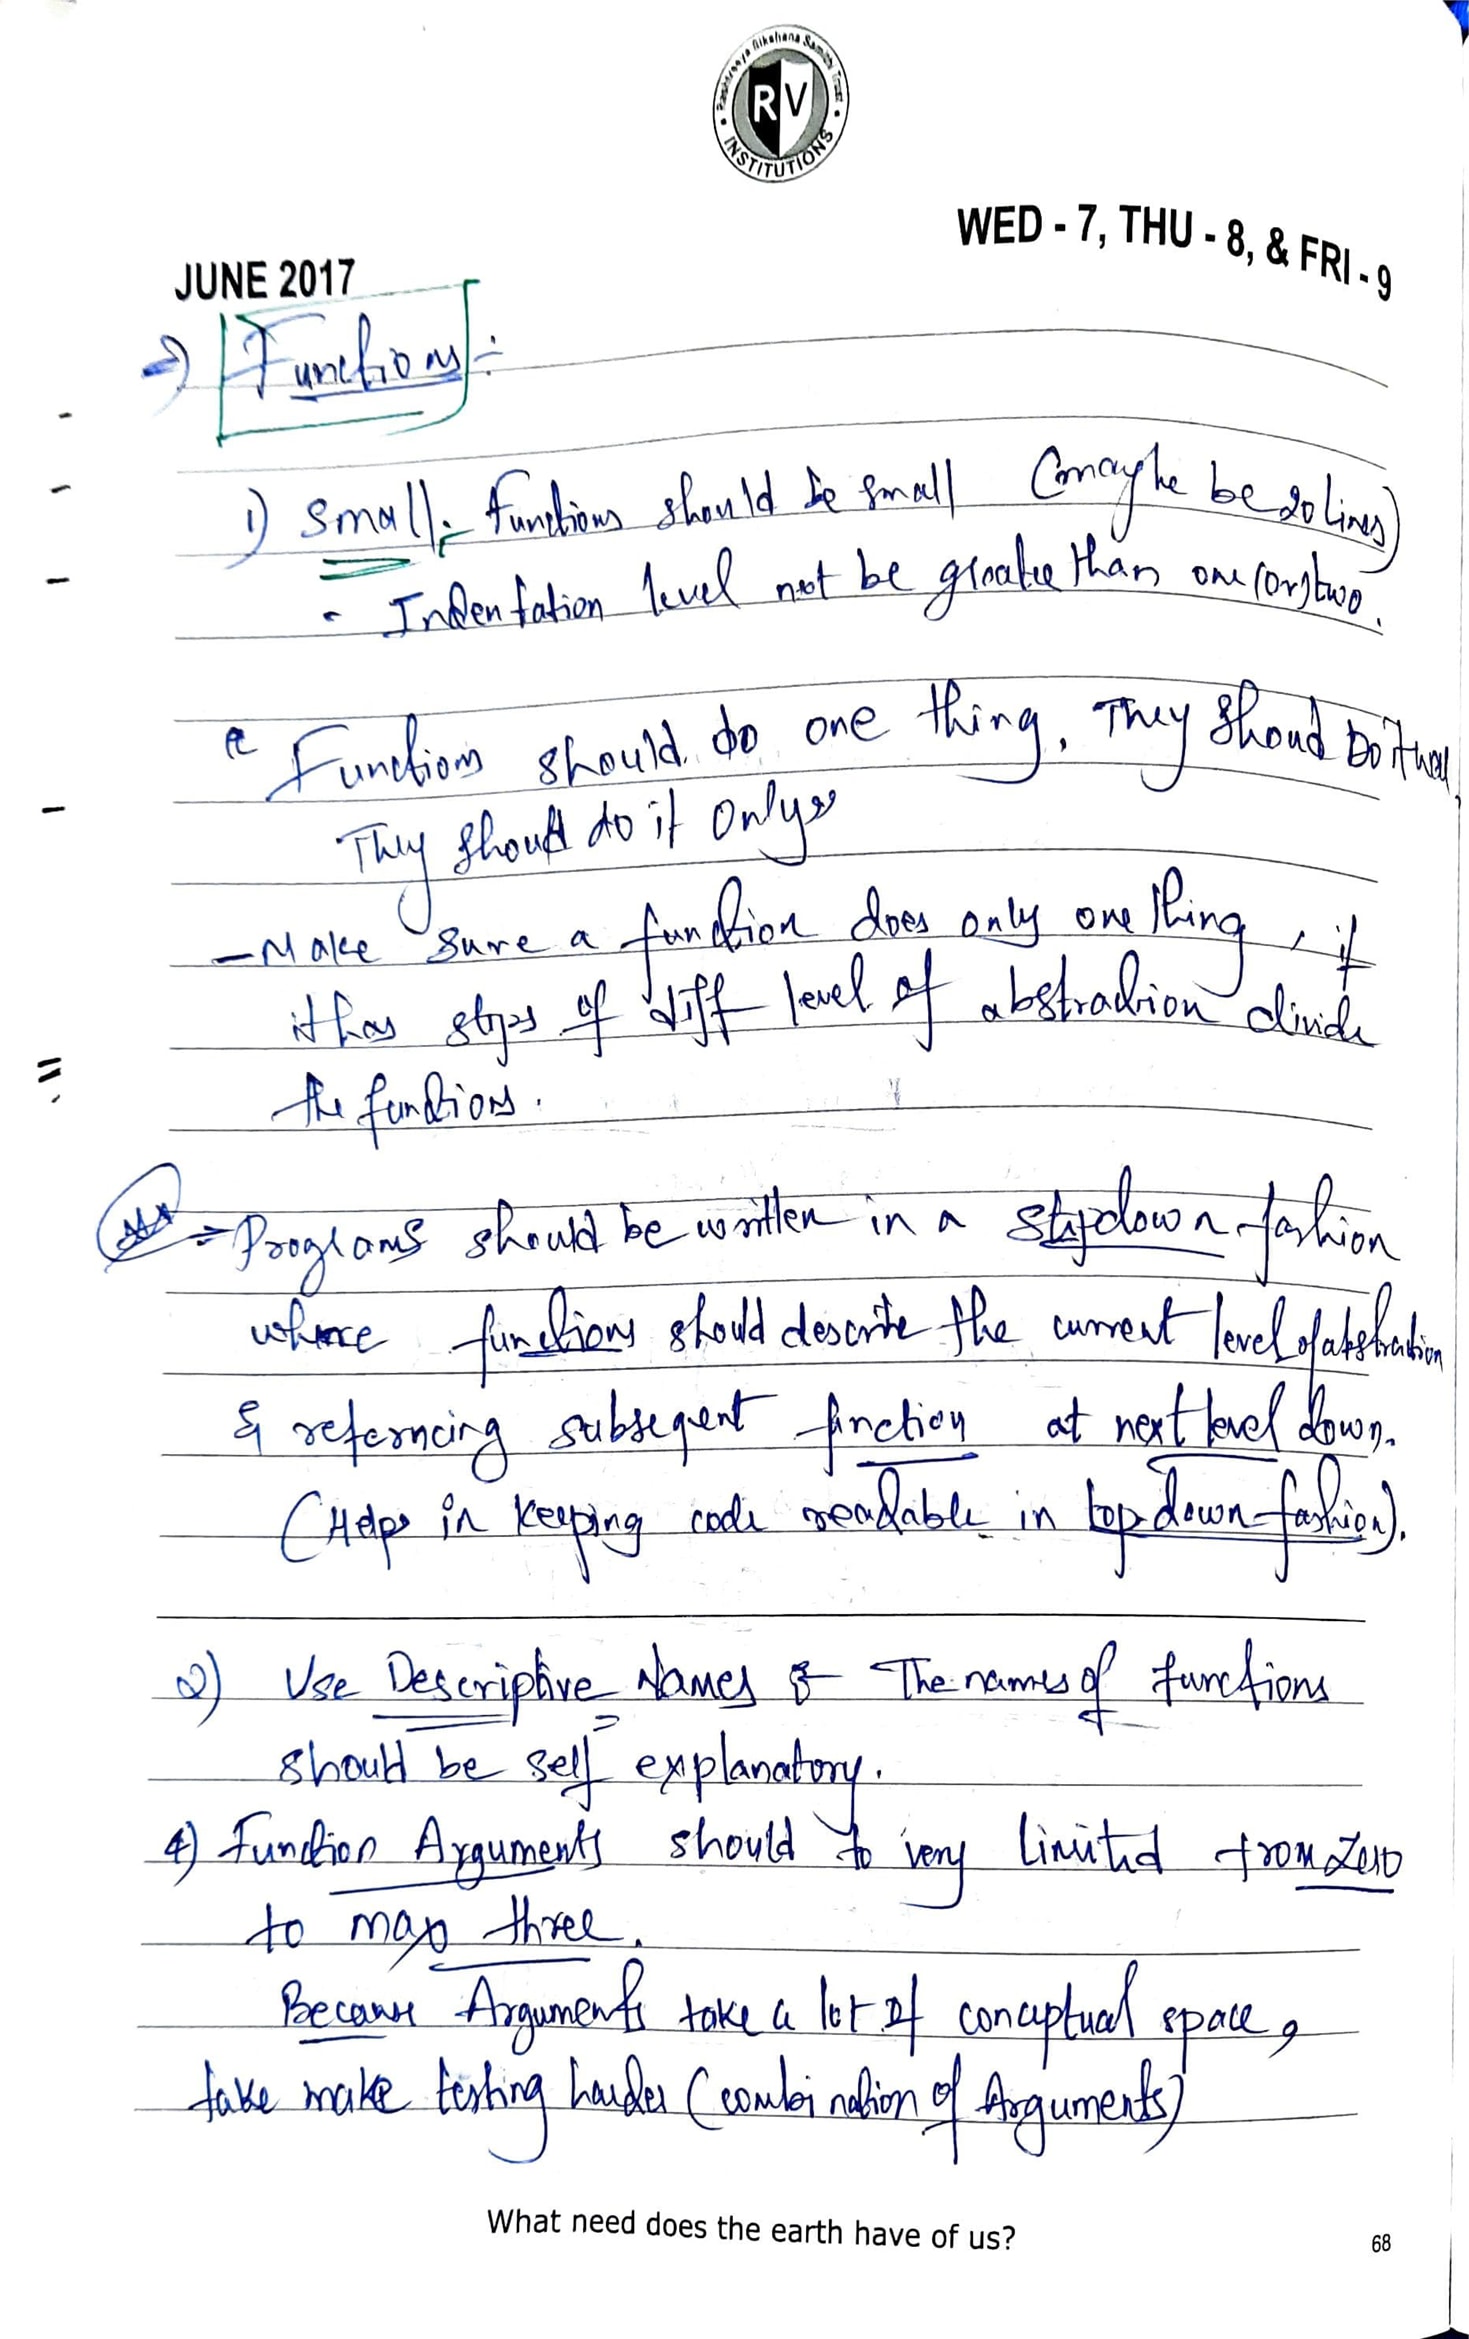 Rashtreeya Sikshana Samithi Trust
RV
INSTITUTIONS
WED - 7, THU - 8, & FRI - 9
JUNE 2017
→ Functions :-
1) Small :- functions should be small (maybe be 20 lines)
- Indentation level not be greater than one (or) two.
Functions should do one thing, They shoud Do it well,
They should do it only
- Make sure a function does only one thing, if
it has steps of diff level of abstraction divide
the functions.
⇒ Programs should be written in a stepdown fashion
where functions should describe the current level of abstraction
& referncing subseqent function at next level down.
(Helps in keeping code readable in top down fashion).
2) Use Descriptive Names :- The names of functions
should be self explanatory.
4) Function Arguments should to very limited from zero
to max three.
Because Arguments take a lot of conceptual space,
take make testing harder (combination of Arguments)
What need does the earth have of us?
68